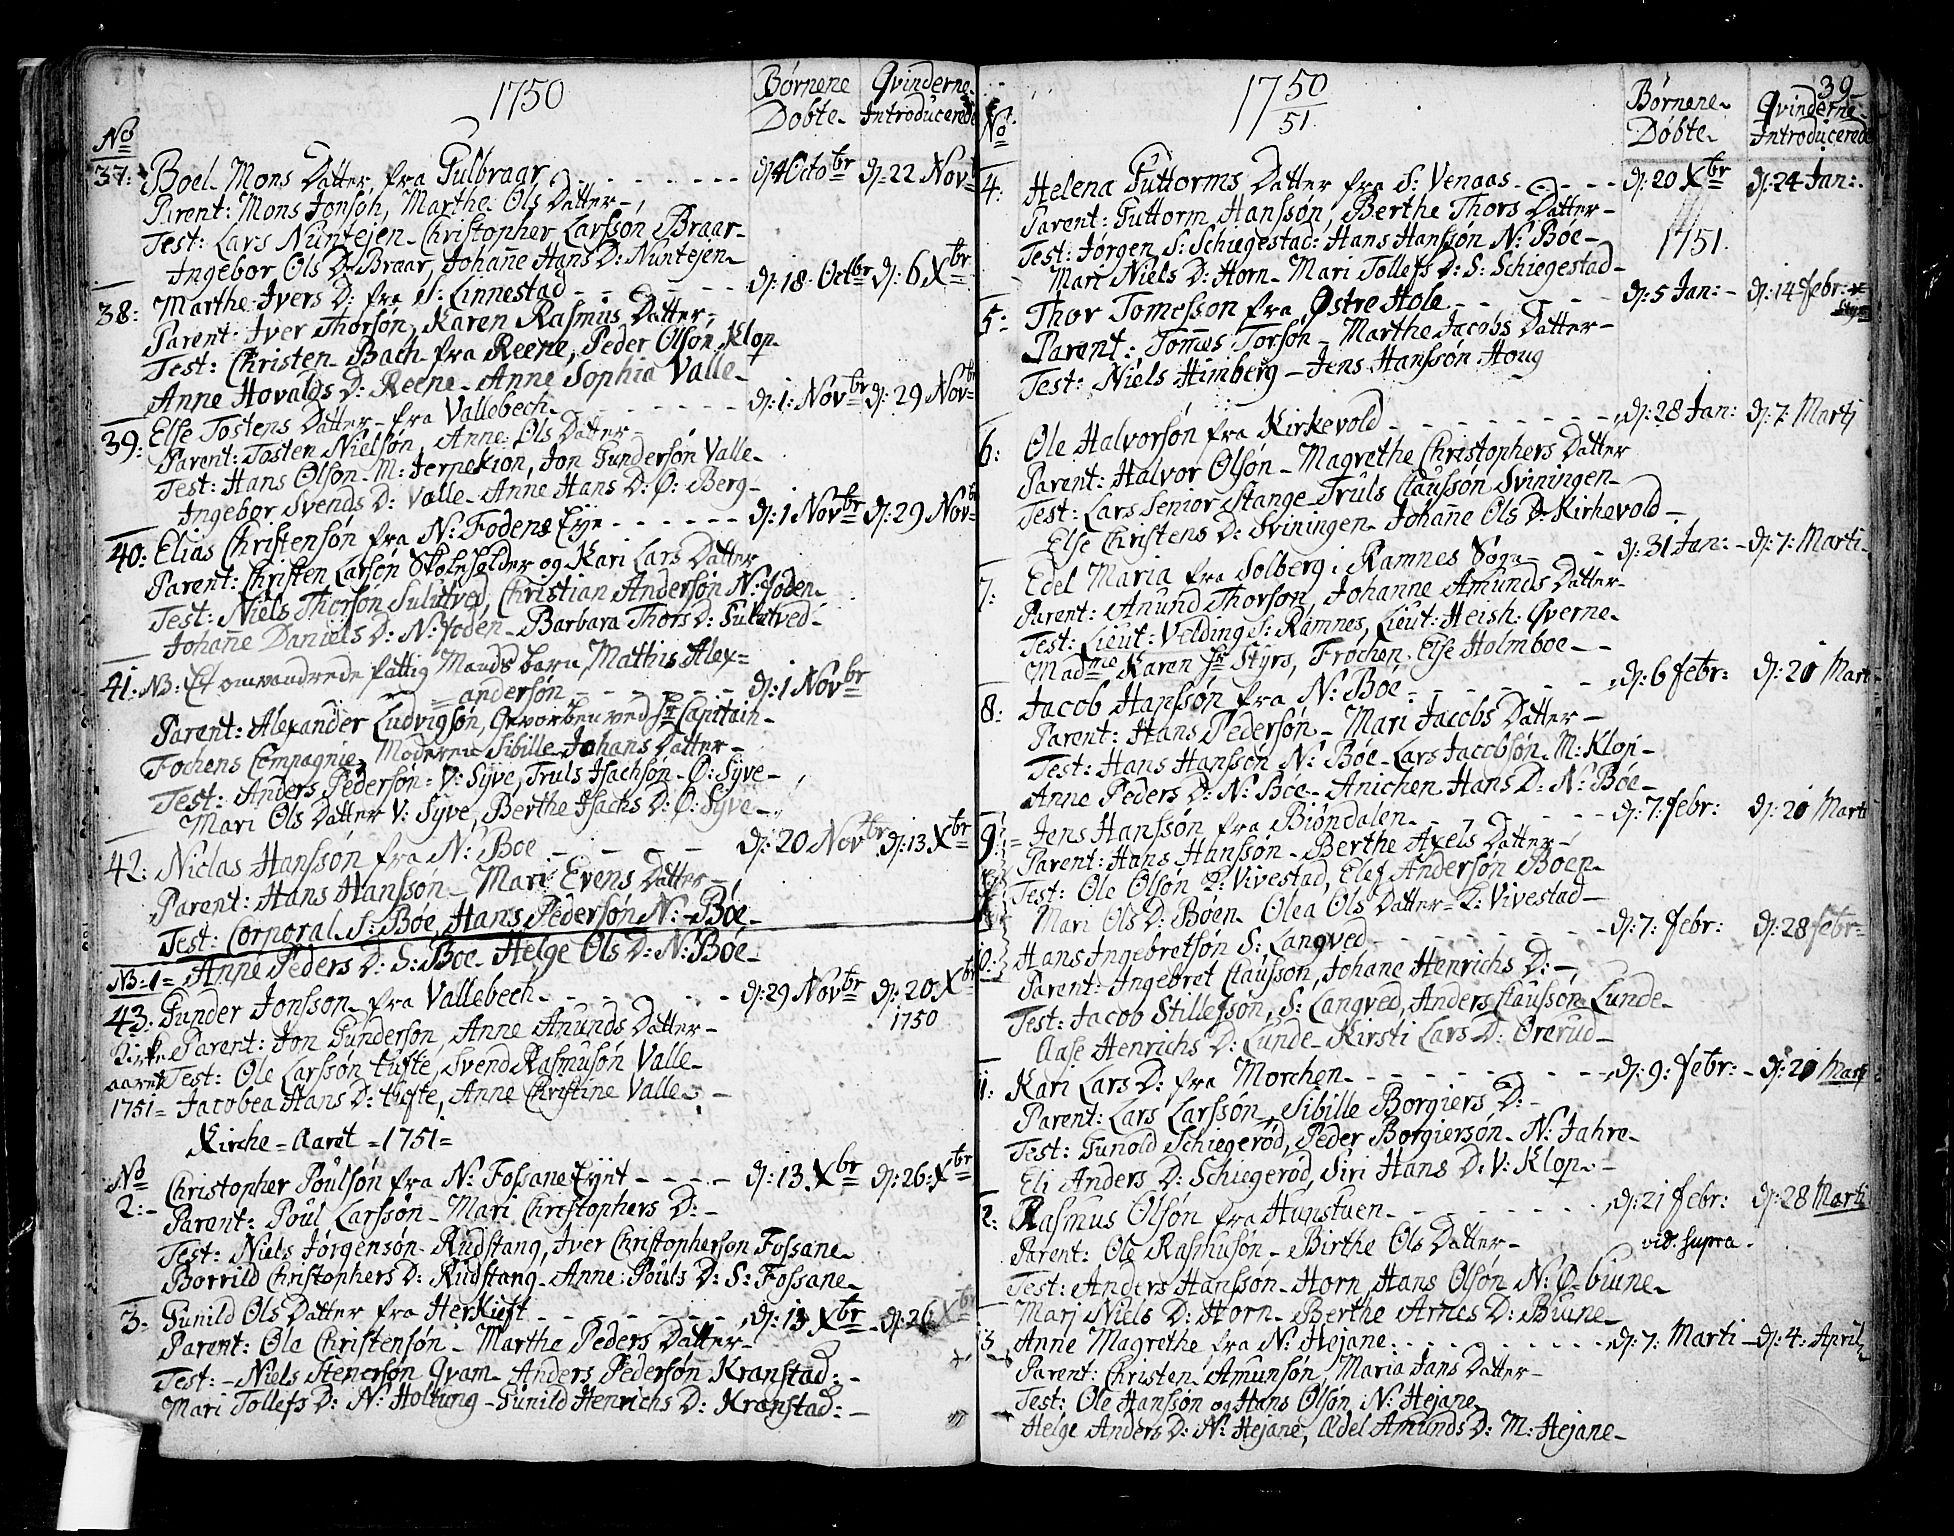 1750
Børnene Døbte
Qvinderne Introducerede
No
37: Boel Mons Datter fra Gulbraar - - - d: 4 Octobr d: 22 Novb
Parent: Mons Jonsøn, Marthe Ols Datter -
Test: Lars Nuntejen - Christopher Larssøn Braar -
Ingebor Ols D: Braar, Johanne Hans D: Nuntejen -
38: Marthe Ivers D: fra S: Linnestad - - - d: 18 Octbr d: 6 Xbr
Parent: Iver Thorsøn, Karen Rasmus Datter -
Test: Christen Bach fra Reene, Peder Olsøn Klop
Anne Hovalds D: Reene - Anne Sophia Valle -
39: Else Tostens Datter - fra Vallebech - - - d: 1: Novbr d: 29 Novbr
Parent: Tosten Nielsøn, Anne Ols Datter -
Test: Hans Olson M: Jernekion, Jon Gundersøn Valle -
Ingebor Svends D: Valle - Anne Hans D: Ø: Berg -
40: Elias Christensøn fra N: Fodens Eje - - - d: 1 Novbr d: 29 Novbr
Parent: Christen Larsøn Skoleholder og Kari Lars Datter
Test: Niels Thorsøn Sulutved, Christian Andersøn N: foden -
Johanne Daniels D: N: foden - Barbara Thors D: Sulutved -
41: NB: Et omvandrede fattig Mands barn, Mathis Alex=
=andersøn - - - d: 1 Novbr
Parent: Alexander Ludvigsøn, Gevorben ved Hr Capitain
Fochens Compagnie, Moderen Sibille Johans Datter -
Test: Anders Pedersøn - V: Syve, Truls Isachsøn - Ø: Syve -
Mari Ols Datter V: Syve, Berthe Isachs D: Ø: Syve -
42: Niclas Hanssøn fra N: Boe - - - d: 20 Novbr d: 13 Xbr
Parent: Hans Hanssøn - Mari Evens Datter -
Test: Corporal S: Bøe, Hans Pedersøn N: Bøe -
NB: 1= Anne Peders D: S: Boe - Helge Ols D: N: Bøe -
43: Gunder Jonsson - fra Vallebech - - - d: 29 Novbr d: 20 Xbr 1750
Kirke Parent: Jon Gundersøn, Anne Anunds Datter -
aaret Test: Ole Larssøn tufte, Svend Rasmusøn Valle -
1751= Jacobea Hans D: tufte, Anne Christine Valle -
Kirche - Aaret =1751=
No
2: - Christopher Poulsøn fra N: Fossane Eynt - - - d: 13 Xbr d: 26 Xbr
Parent: Poul Larssøn - Mari Christophers D: -
Test: Niels Jørgensøn - Rudstang, Iver Christophersøn Fossane -
Borrild Christophers D: Rudstang - Anne Pouls D: S: Fossane -
3 - Gunild Ols Datter fra Herkieft - - - d: 13 Xbr d: 26 Xbr
Parent: Ole Christensøn - Marthe Peders Datter -
Test: - Niels Stenersøn Qvam - Anders Pedersøn Kranstad: -
Mari Tollefs D: N: Holtung - Gunild Henrichs D: Kranstad: -
1750/51
39
Børnene Døbte
Qvinderne Introducerede
No
4: Helena Guttorms Datter fra S: Venaas - - - d: 20 Xbr d: 24 Jan:
Parent: Guttorm Hanssøn, Berthe Thors Datter -
1751.
Test: Jørgen S: Schiegestad: Hans Hanssøn N: Boe -
Mari Niels D: Horn - Mari Tollefs D: S: Schiegestad -
5 - Thor Tomesson fra Østre Hole - - - d: 5 Jan: - d: 14 febr:
Parent: Tommes Torsøn - Marthe Jacobs Datter -
Test: Niels Himberg - Jens Hanssøn Houg
6: Ole Halvorsøn fra Kirkevold - - - d: 28 Jan: d: 7: Martj
Parent: Halvor Olsøn - Magrethe Christophers Datter
Test: Lars Senior Stange Truls Claussøn Sviningen -
Else Christens D: Sviningen - Johanne Ols D: Kirkevold -
7: Edel Maria fra Solberg i Ramnes Sogn - - d: 31 Jan: - d: 7: Marti -
Parent: Anund Thorson, Johanne Amunds Datter -
Test: Lieut: Velding S: Ramnes, Lieut: Heish: Qverne -
Madme Karen Hr Styrs, Frøchen Else Holmboe -
8: Jacob Hanssøn fra N: Boe - - - d: 6 febr: d: 21 Marti
Parent: Hans Pedersøn - Mari Jacobs Datter -
Test: Hans Hanssøn N: Bøe - Lars Jacobsøn M: Klop -
Anne Peders D: N: Bøe - Anichen Hans D: N: Bøe -
9: = Jens Hanssøn fra Biøndalen - - - d: 7: febr: d: 21 Marti
Parent: Hans Hanssøn - Berthe Axels Datter -
Test: Ole Olsøn Vivestad, Elef Andersøn Boen -
Mari Ols D: Bøen - Olea Ols Datter - Vivestad -
10: Hans Ingebretsøn S: Langved - - - d: 7: febr: d: 28 febr:
Parent: Ingebret Claussøn, Johane Henrichs D: -
Test: Jacob Stillefsøn, S: Langved, Anders Claussøn Lunde -
Aase Henrichs D: Lunde - Kirsti Lars D: Orerud -
11: Kari Lars D: fra Morchen - - - d: 9: febr: - d: 21 Martj
Parent: Lars Larssøn, Sibille Borgiers D: -
Test: Gunold Schiegerød, Peder Borgiersøn - N: Jahre -
Eli Anders D: Schiegerød, Siri Hans D: V: Klop -
12: Rasmus Olsøn fra Hunstuen - - - d: 21 febr: d: 28 Marti
Parent: Ole Rasmusøn - Birthe Ols Datter -
vid: supra -
Test: Anders Hanssøn - Horn, Hans Olsøn N: Ø= biune -
Marj Niels D: Horn - Berthe Arnes D: Biune -
13 Anne Magrethe fra N: Hejane - - - d: 7: Marti - d: 4: April
Parent: Christen Amunsøn, Maria Jans Datter -
Test: Ole Hanssøn og Hans Olsøn N: Hejane
Helge Anders D: N: Hejane, Ædel Amunds D: M: Hejane -